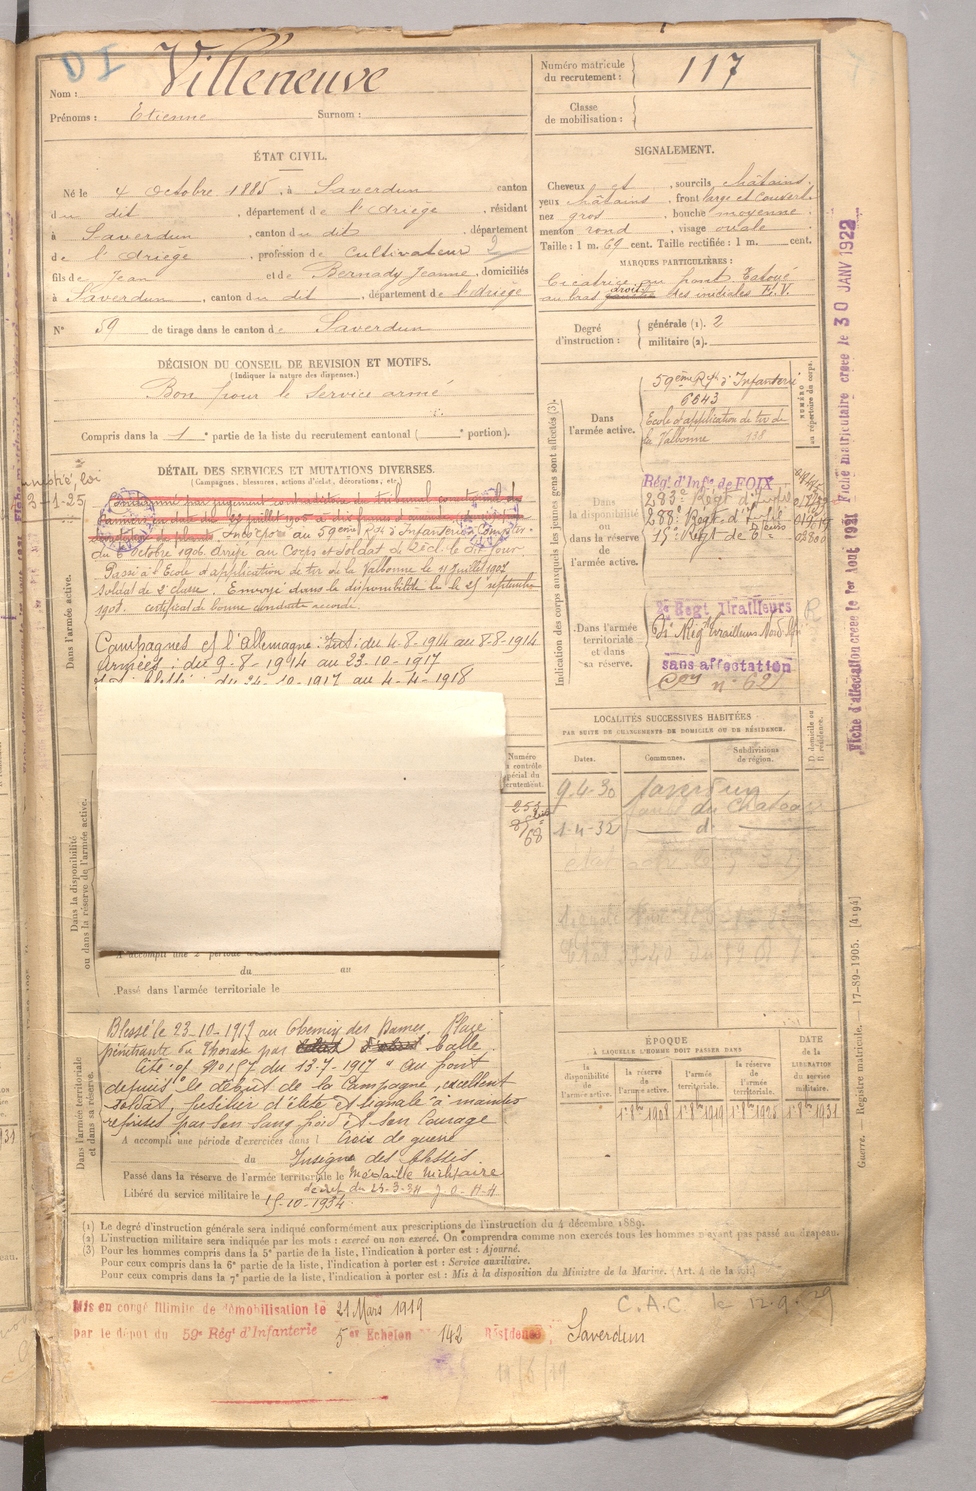 DI
Nom : Villeneuve
Prénoms : Etienne Surnom :
Numéro matricule du recrutement : 117
Classe de mobilisation :
ÉTAT CIVIL.
Né le 4 Octobre 1885, à Saverdun canton
du dit, département de l'Ariège, résidant
à Saverdun, canton du dit, département
de l'Ariège, profession de Cultivateur 2
fils de Jean et de Bernady Jeanne, domiciliés
à Saverdun, canton du dit, département de l'Ariège
N° 59 de tirage dans le canton de Saverdun
DÉCISION DU CONSEIL DE REVISION ET MOTIFS.
(Indiquer la nature des dispenses.)
Bon pour le service armé
Compris dans la 1e partie de la liste du recrutement cantonal ( e portion).
DÉTAIL DES SERVICES ET MUTATIONS DIVERSES.
(Campagnes, blessures, actions d'éclat, décorations, etc.)
loi
3-1-25
Dans l'armée active.
Condamné par jugement contradictoire du tribunal correctionnel de
Pamiers en date du juillet 1905 à dix francs d'amende
Incorporé au 59eme Rgt d'Infanterie à Compter
du 6 Octobre 1906. Arrivé au Corps et soldat de 2e cl. le dit jour.
Passé à l'Ecole d'application de tir de la Valbonne le 11 Juillet 1907
Soldat de 2e classe. Envoyé dans la disponibilité le 25 septembre
1908. certificat de bonne conduite accordé.
Campagnes cf l'Allemagne : Int : du 4-8-1914 au 8-8-1914
Armées : du 9-8-1914 au 23-10-1917
du 24-10-1917 au 4-4-1918
Dans la disponibilité
ou dans la réserve de l'armée active.
A accompli une 2e période
du au
Passé dans l'armée territoriale le
Dans l'armée territoriale
et dans sa réserve.
Blessé le 23-10-1917 au Chemin des Dames. Plaie
pénétrante du thorax par balle.
Cité : of N° 157 du 13-7-1917 "au front
depuis le début de la Campagne, excellent
soldat, fusilier d'élite, s'est signalé à maintes
reprises par son sang froid et son Courage
A accompli une période d'exercices dans l Croix de guerre
du Insigne des blessés
Passé dans la réserve de l'armée territoriale le Médaille militaire
décret du 23-3-34 J O 11-4
Libéré du service militaire le 15-10-1934
SIGNALEMENT.
Cheveux et, sourcils châtains.
yeux châtains, front large et Couvert
nez gros, bouche moyenne.
menton rond, visage ovale.
Taille : 1 m. 69 cent. Taille rectifiée : 1 m. cent.
MARQUES PARTICULIÈRES :
Cicatrice au front Tatoué
au bras droit gauche les initiales E.V.
Degré d'instruction : générale (1). 2
militaire (2).
Indication des corps auxquels les jeunes gens sont affectés (3).
NUMÉRO au répertoire du corps.
Dans l'armée active.
59ème Rgt d'Infanterie
6643
Ecole d'application de tir de
la Valbonne 138
Dans la disponibilité ou dans la réserve de l'armée active.
Régt d'Infie de FOIX
283e Régt d'Infie
288e Régt d'Infie
15e Régt de Tleurs
Dans l'armée territoriale et dans sa réserve.
2e Régt Tirailleurs
sans affectation
n° 62
Numéro au contrôle spécial du recrutement.
253 bis
68
LOCALITÉS SUCCESSIVES HABITÉES
PAR SUITE DE CHANGEMENTS DE DOMICILE OU DE RÉSIDENCE.
Dates. Communes. Subdivisions de région. D. domicile ou R. résidence.
9-4-30 Saverdun
du Chateau
1-4-32 d°
ÉPOQUE
À LAQUELLE L'HOMME DOIT PASSER DANS
la disponibilité de l'armée active. la réserve de l'armée active. l'armée territoriale. la réserve de l'armée territoriale.
DATE de la LIBÉRATION du service militaire.
1er 8bre 1908 1er 8bre 1919 1er 8bre 1925 1er 8bre 1931
(1) Le degré d'instruction générale sera indiqué conformément aux prescriptions de l'instruction du 4 décembre 1889.
(2) L'instruction militaire sera indiquée par les mots : exercé ou non exercé. On comprendra comme non exercés tous les hommes n'ayant pas passé au drapeau.
(3) Pour les hommes compris dans la 5e partie de la liste, l'indication à porter est : Ajourné.
Pour ceux compris dans la 6e partie de la liste, l'indication à porter est : Service auxiliaire.
Pour ceux compris dans la 7e partie de la liste, l'indication à porter est : Mis à la disposition du Ministre de la Marine. (Art. 4 de la loi.)
Mis en congé illimité de démobilisation le 21 Mars 1919 C.A.C. le 12-9-29
par le dépôt du 59e Régt d'Infanterie 5e Echelon 142 Résidence Saverdun
Fiche d'affectation créée le 1er Aout 1921 Fiche matriculaire créée le 30 JANV 1922
Guerre. — Registre matricule. — 17-89-1905. [4194]